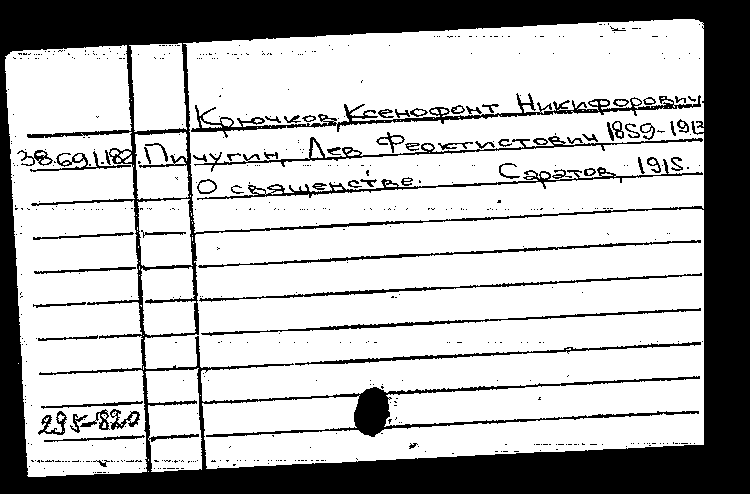 Крючков, Ксенофонт Никифорович
38.69.1.182. Пичугин, Лев Феоктистович, 1859-1913
О священстве. Саратов, 1915.
295-820